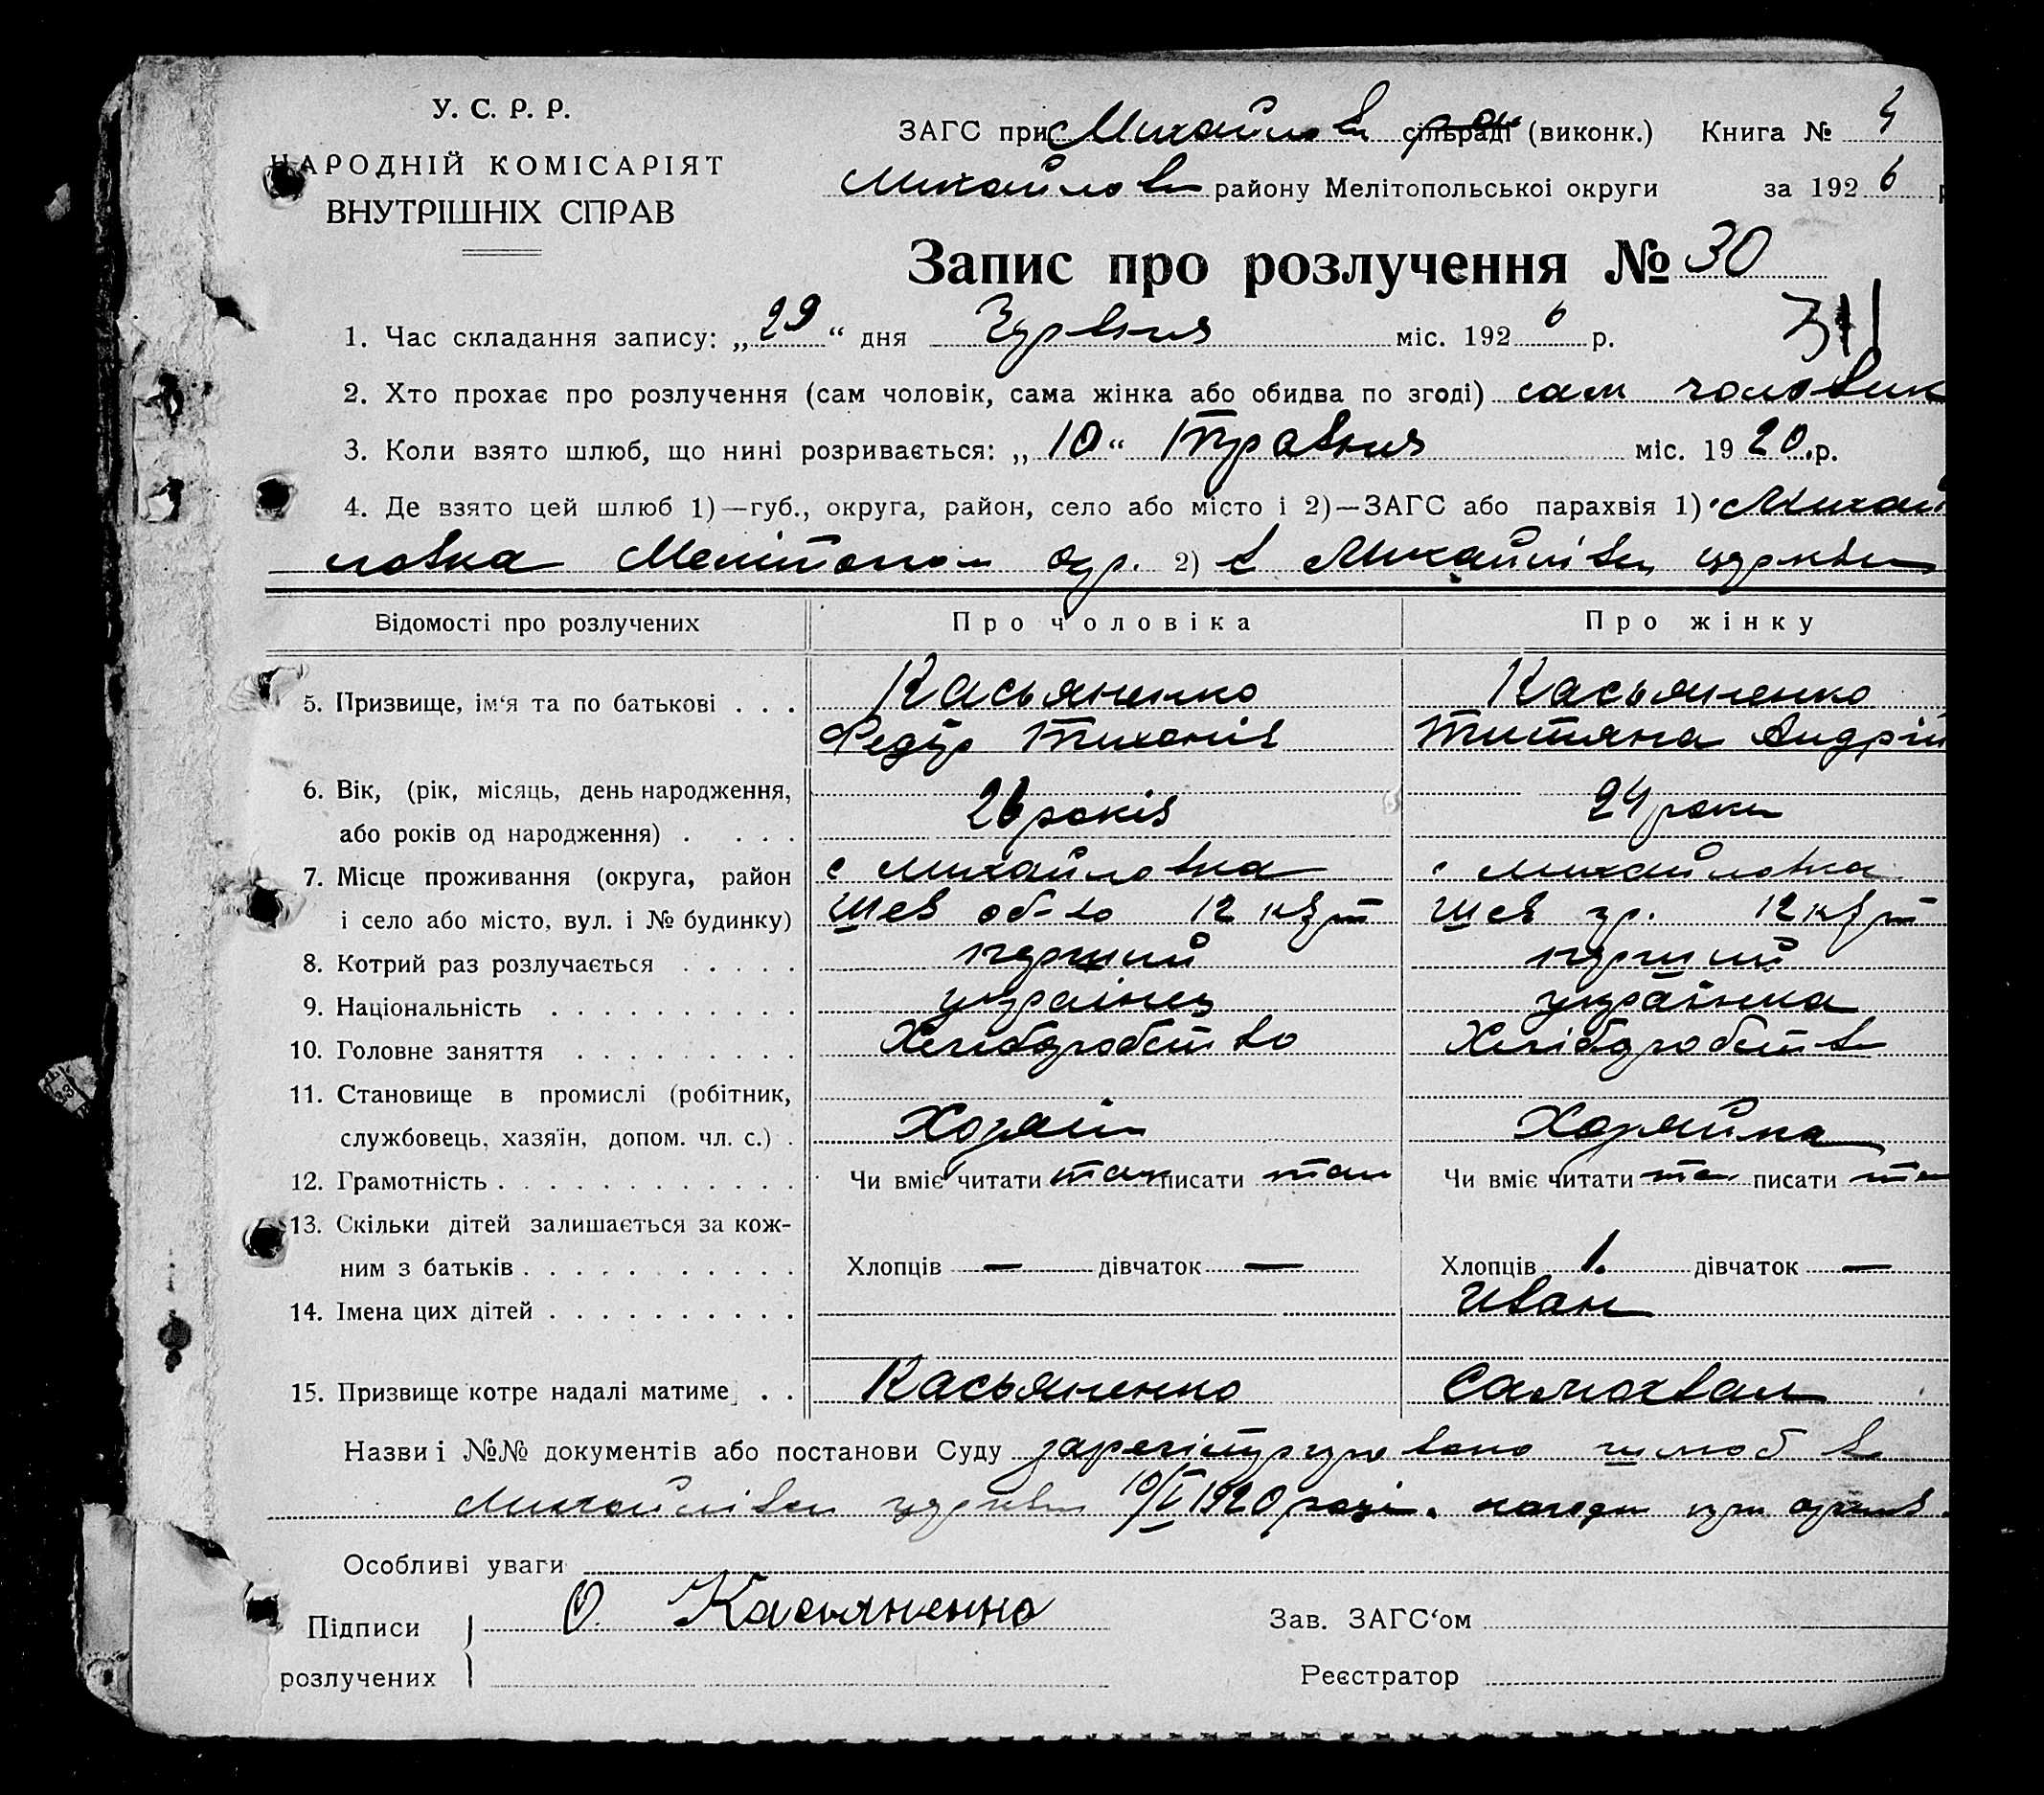 У. С. Р. Р.
НАРОДНІЙ КОМІСАРІЯТ
ВНУТРІШНІХ СПРАВ
ЗАГС при Михайлов сільраді рай (виконк.) Книга № 4
Михайлов району Мелітопольської округи за 1926 р
Запис про розлучення № 30
31
1. Час складання запису: „29“ дня Червня міс. 1926 р.
2. Хто прохає про розлучення (сам чоловік, сама жінка або обидва по згоді) сам чоловик
3. Коли взято шлюб, що нині розривається: „10“ Травня міс. 1920.р.
4. Де взято цей шлюб 1)—губ., округа, район, село або місто і 2)—ЗАГС або парахвія 1) Михай
ловка Мелітопол окр. 2) в Михайлівск церкви
Відомості про розлучених Про чоловіка Про жінку
5. Призвище, ім‘я та по батькові . . . Касьяненко Касьяненко
Федір Тихонів Титяна Андрій
6. Вік, (рік, місяць, день народження,
або років од народження) . . . . 26 років 24 роки
7. Місце проживання (округа, район с Михайловка с Михайловка
і село або місто, вул. і № будинку) Шев об-во 12 кв Шев гр. 12 кв
8. Котрий раз розлучається . . . . . перший перший
9. Національність . . . . . . . . . . українец українка
10. Головне заняття . . . . . . . . . Хлібороб­ство Хліборобств
11. Становище в промислі (робітник,
службовець, хазяїн, допом. чл. с.) . Хозяін Хозяйка
12. Грамотність . . . . . . . . . . . . Чи вміє читати так писати так Чи вміє читати так писати так
13. Скільки дітей залишається за кож-
ним з батьків . . . . . . . . . . . Хлопців — дівчаток — Хлопців 1. дівчаток —
14. Імена цих дітей . . . . . . . . . . Иван
15. Призвище котре надалі матиме . . Касьяненко Самохвал
Назви і №№ документів або постанови Суду зарегіструровано шлюб в
Михайлівск церкви 10/V 1920 році.
Особливі уваги
Підписи Касьяненко Зав. ЗАГС‘ом
розлучених Реєстратор